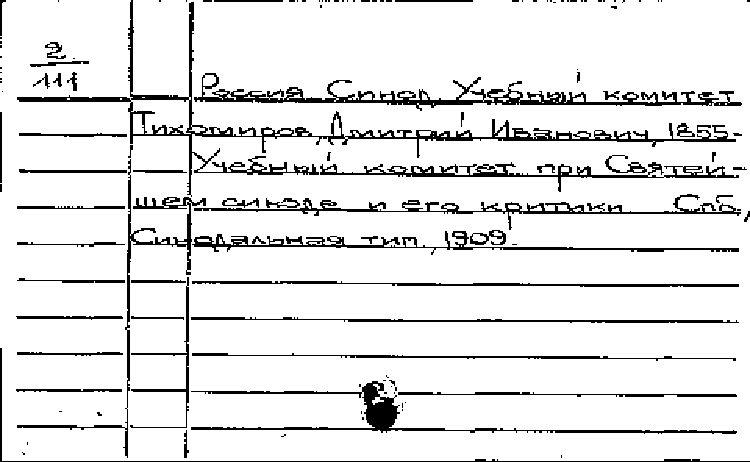 2
111
Россия. Синод. Учебный комитет
Тихомиров, Дмитрий Иванович, 1855-
Учебный комитет при Святей-
шем синоде и его критики. Спб.,
Синодальная тип., 1909.